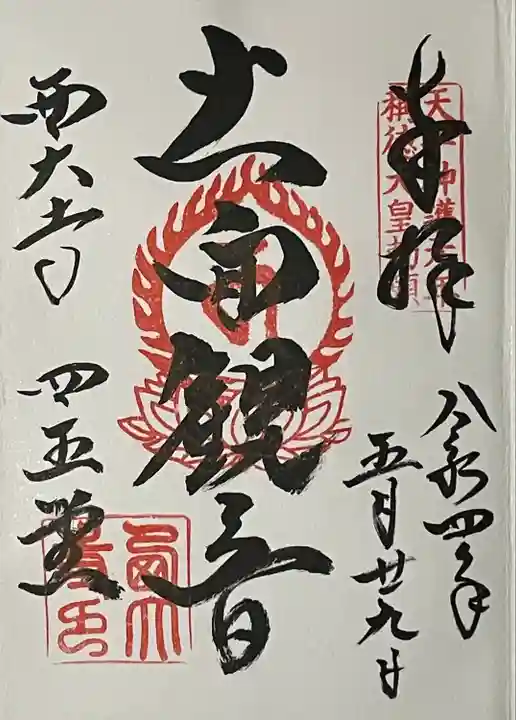 奉拝
天平神護元年
称徳天皇勅願
令和四年
五月廿九日
十一面観音
西大寺
四王堂